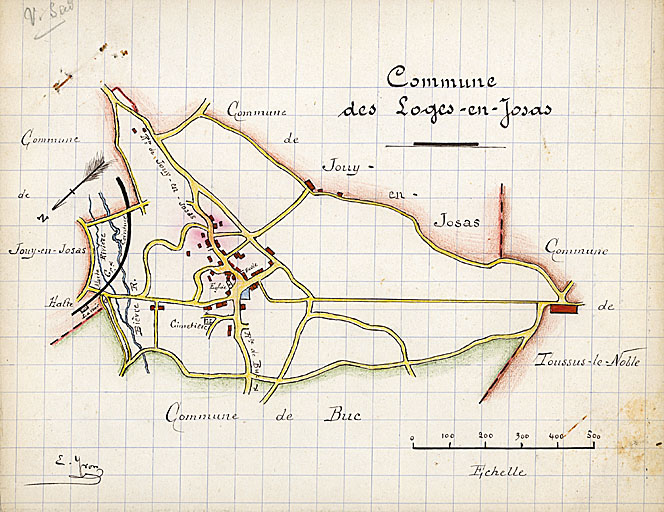 Commune
des Loges-en-Josas
Commune
de
Jouy-
en-
Josas
Commune
de
Jouy-en-Josas
N
Rte de Jouy-en-Josas
Commune
de
Toussus-le-Noble
Halte
Bièvre R.
Eglise
Ecole
Cimetière
Rte de Buc
Commune de Buc
0 100 200 300 400 500
Echelle
E. Yvon